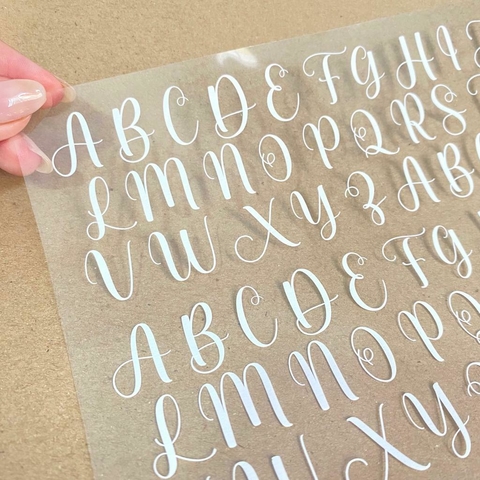 A B C D E F G H I
L M N O P Q R S
V W X Y Z A B C
A B C D E F G
L M N O P Q
W X Y